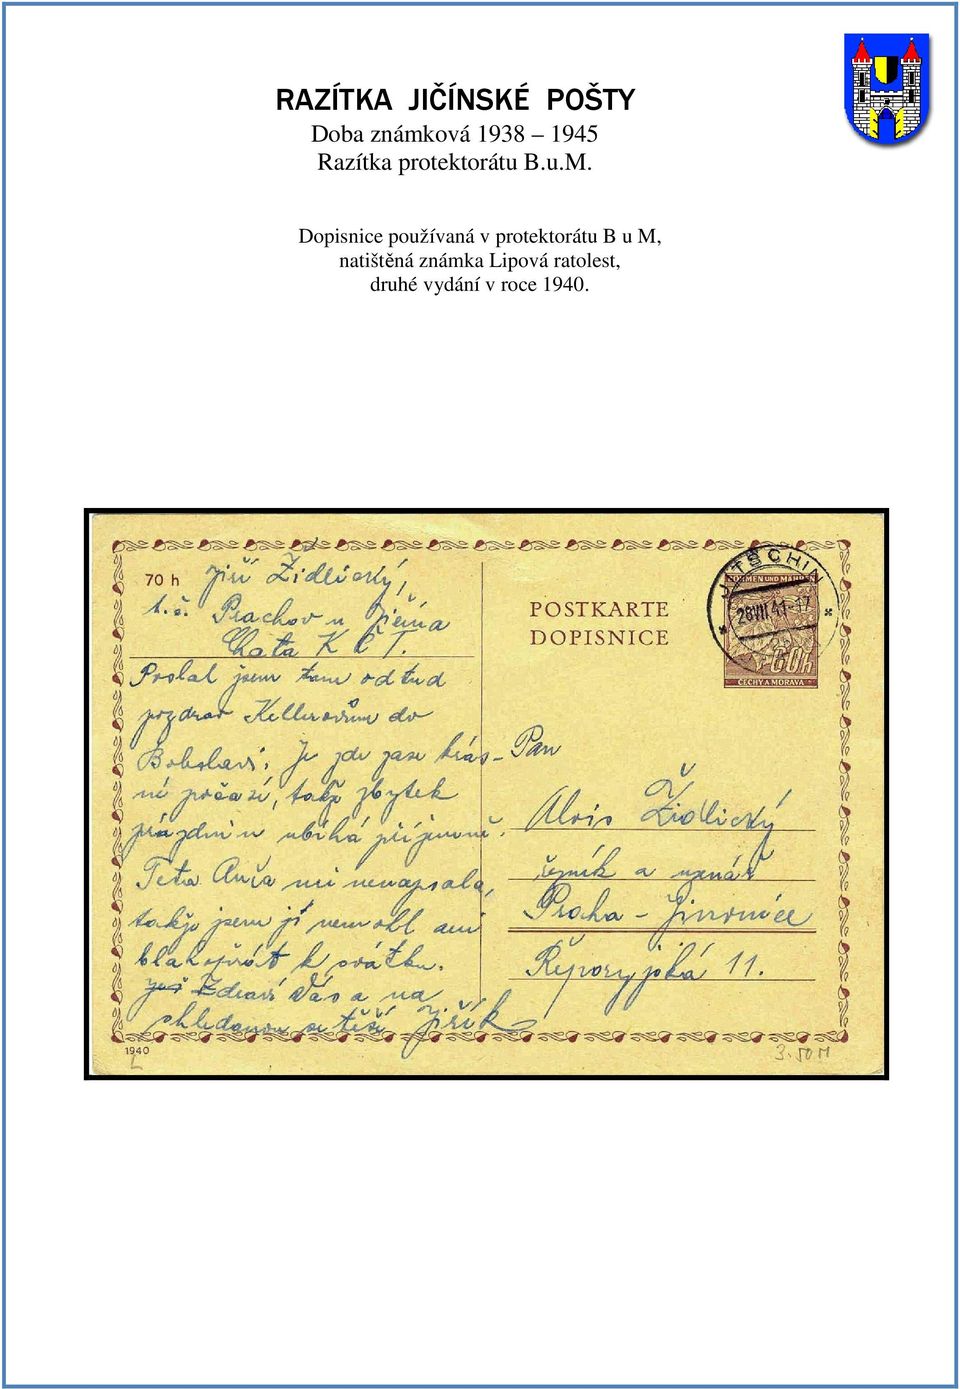 RAZÍTKA JIČÍNSKÉ POŠTY
Doba známková 1938 – 1945
Razítka protektorátu B.u.M.
Dopisnice používaná v protektorátu B u M,
natištěná známka Lipová ratolest,
druhé vydání v roce 1940.
70 h
Jiří Židlický,
t.č. Prachov u Jičína
Chata K Č T.
Poslal jsem tam odtud
pozdrav Kellerovům do
Je zde zase krás-
né počasí, takže zbytek
prázdnin ubíhá příjemně.
Teta Anča mi nenapsala,
takže jsem jí nemohl ani
blahopřát k svátku.
Zdraví Vás a na
shledanou se těší Jiřík
1940
POSTKARTE
DOPISNICE
JITSCHIN
28VII 41-17
BÖHMEN UND MÄHREN
60h
ČECHY A MORAVA
Pan
Alois Židlický
řezník a uzenář
Praha - Jinonice
Řeporyjská 11.
3.50 M